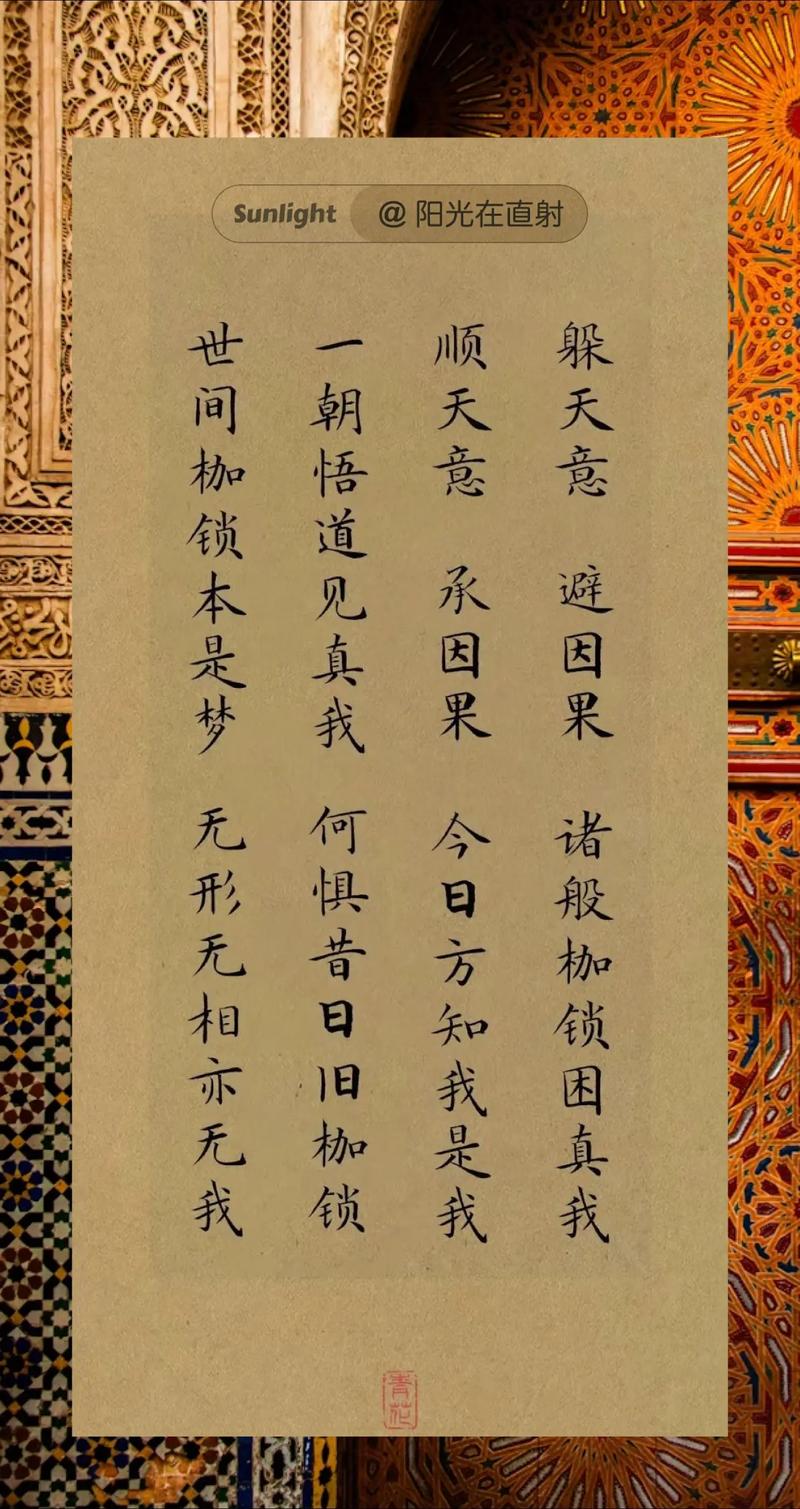 Sunlight @阳光在直射
躲天意 避因果 诸般枷锁困真我
顺天意 承因果 今日方知我是我
一朝悟道见真我 何惧昔日旧枷锁
世间枷锁本是梦 无形无相亦无我
青花